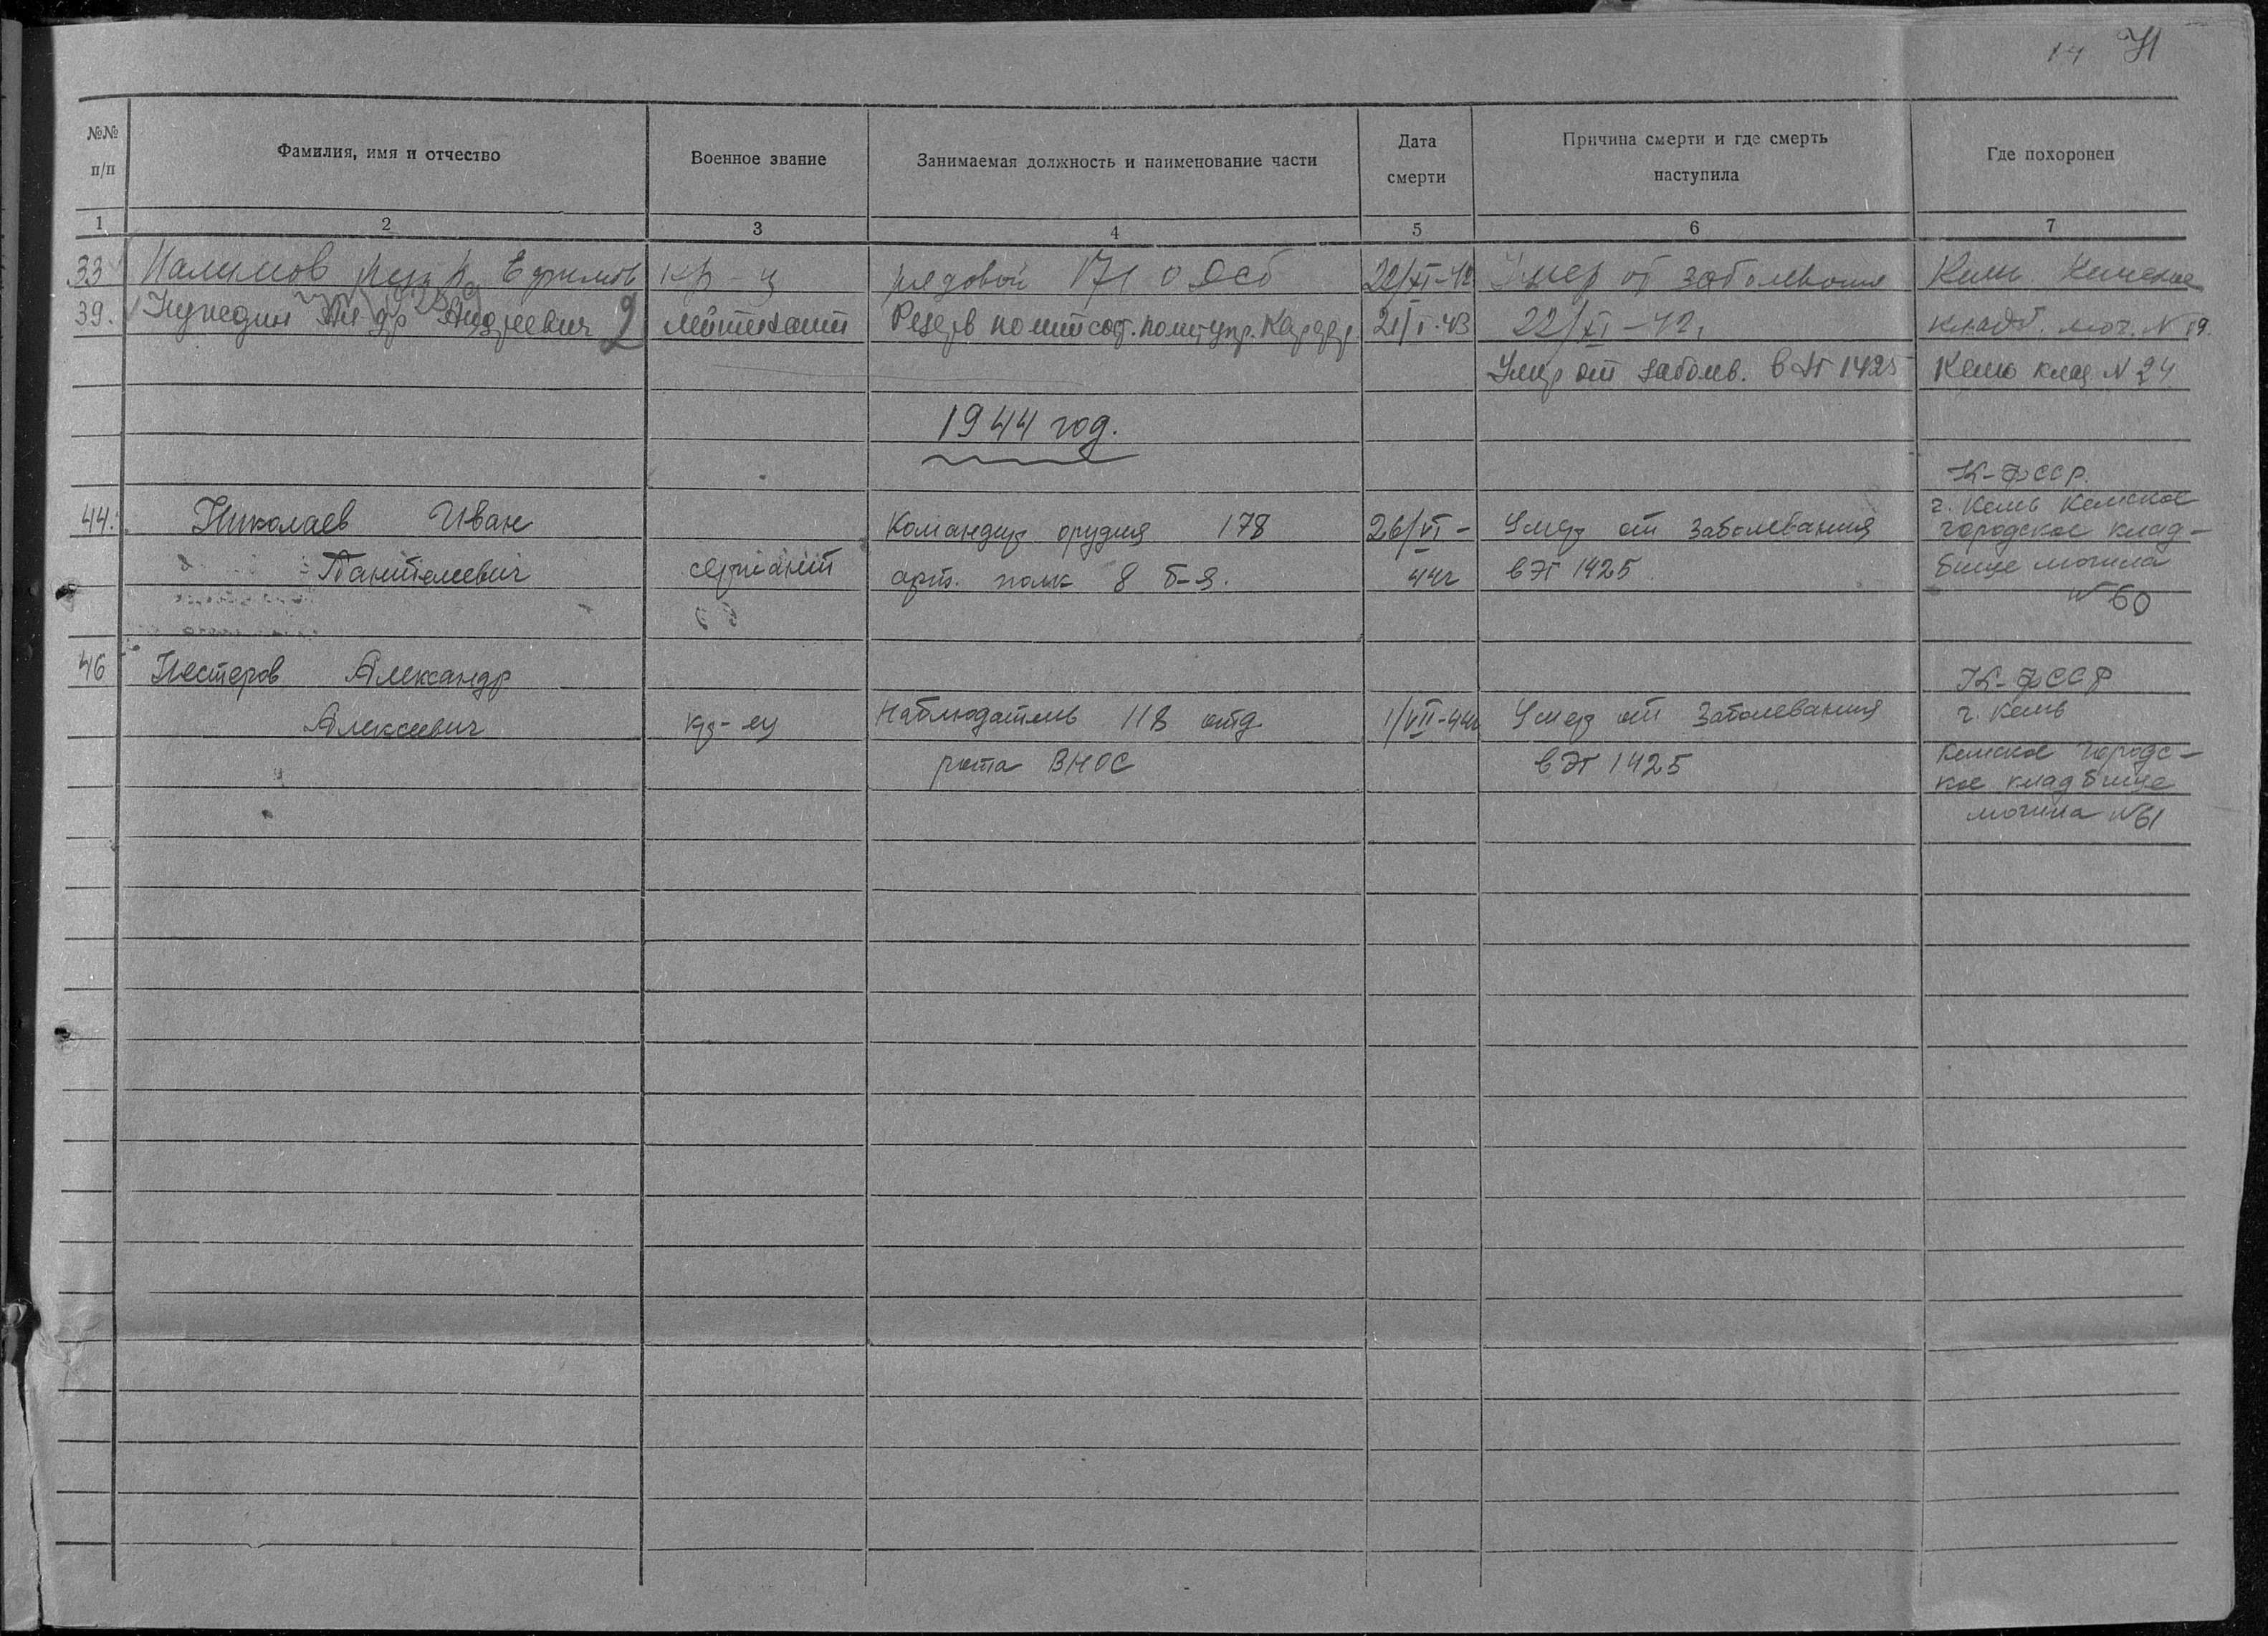 14 Н
№№ п/п
Фамилия, имя и отчество
Военное звание
Занимаемая должность и наименование части
Дата смерти
Причина смерти и где смерть наступила
Где похоронен
1 2 3 4 5 6 7
33 Ефимов кр-ц рядовой 171 22/XI-42 Умер от заболевания Кемь Кемское
39. Нуждин Андреевич 2 лейтенант Резерв политсост. политупр. 21/I-43 22/XI-42. кладб. мог. N 19.
Умер от заболев. в ЭГ 1425 Кемь клад N 24
1944 год.
К-ФССР.
г. Кемь Кемское
44. Николаев Иван Командир орудия 178 26/VI- Умер от заболевания городское клад-
Пантелеевич сержант арт. полк 8 б-я. 44г в ЭГ 1425 бище могила
N 60
46 Нестеров Александр К-ФССР
Алексеевич кр-ец Наблюдатель 118 отд. 1/VII-44г Умер от заболевания г. Кемь
рота ВНОС в ЭГ 1425 Кемское городс-
кое кладбище
могила N 61